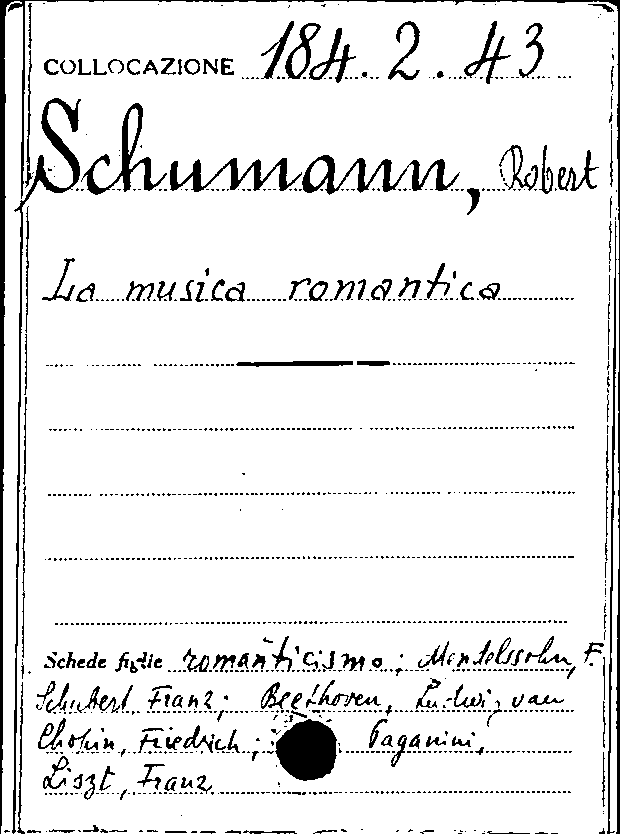 COLLOCAZIONE 184. 2. 43
Schumann, Robert
La musica romantica
Schede figlie romanticismo; Mendelssohn, F.
Schubert, Franz; Beethoven, Ludwig van
Chopin, Friedrich; Paganini,
Liszt, Franz